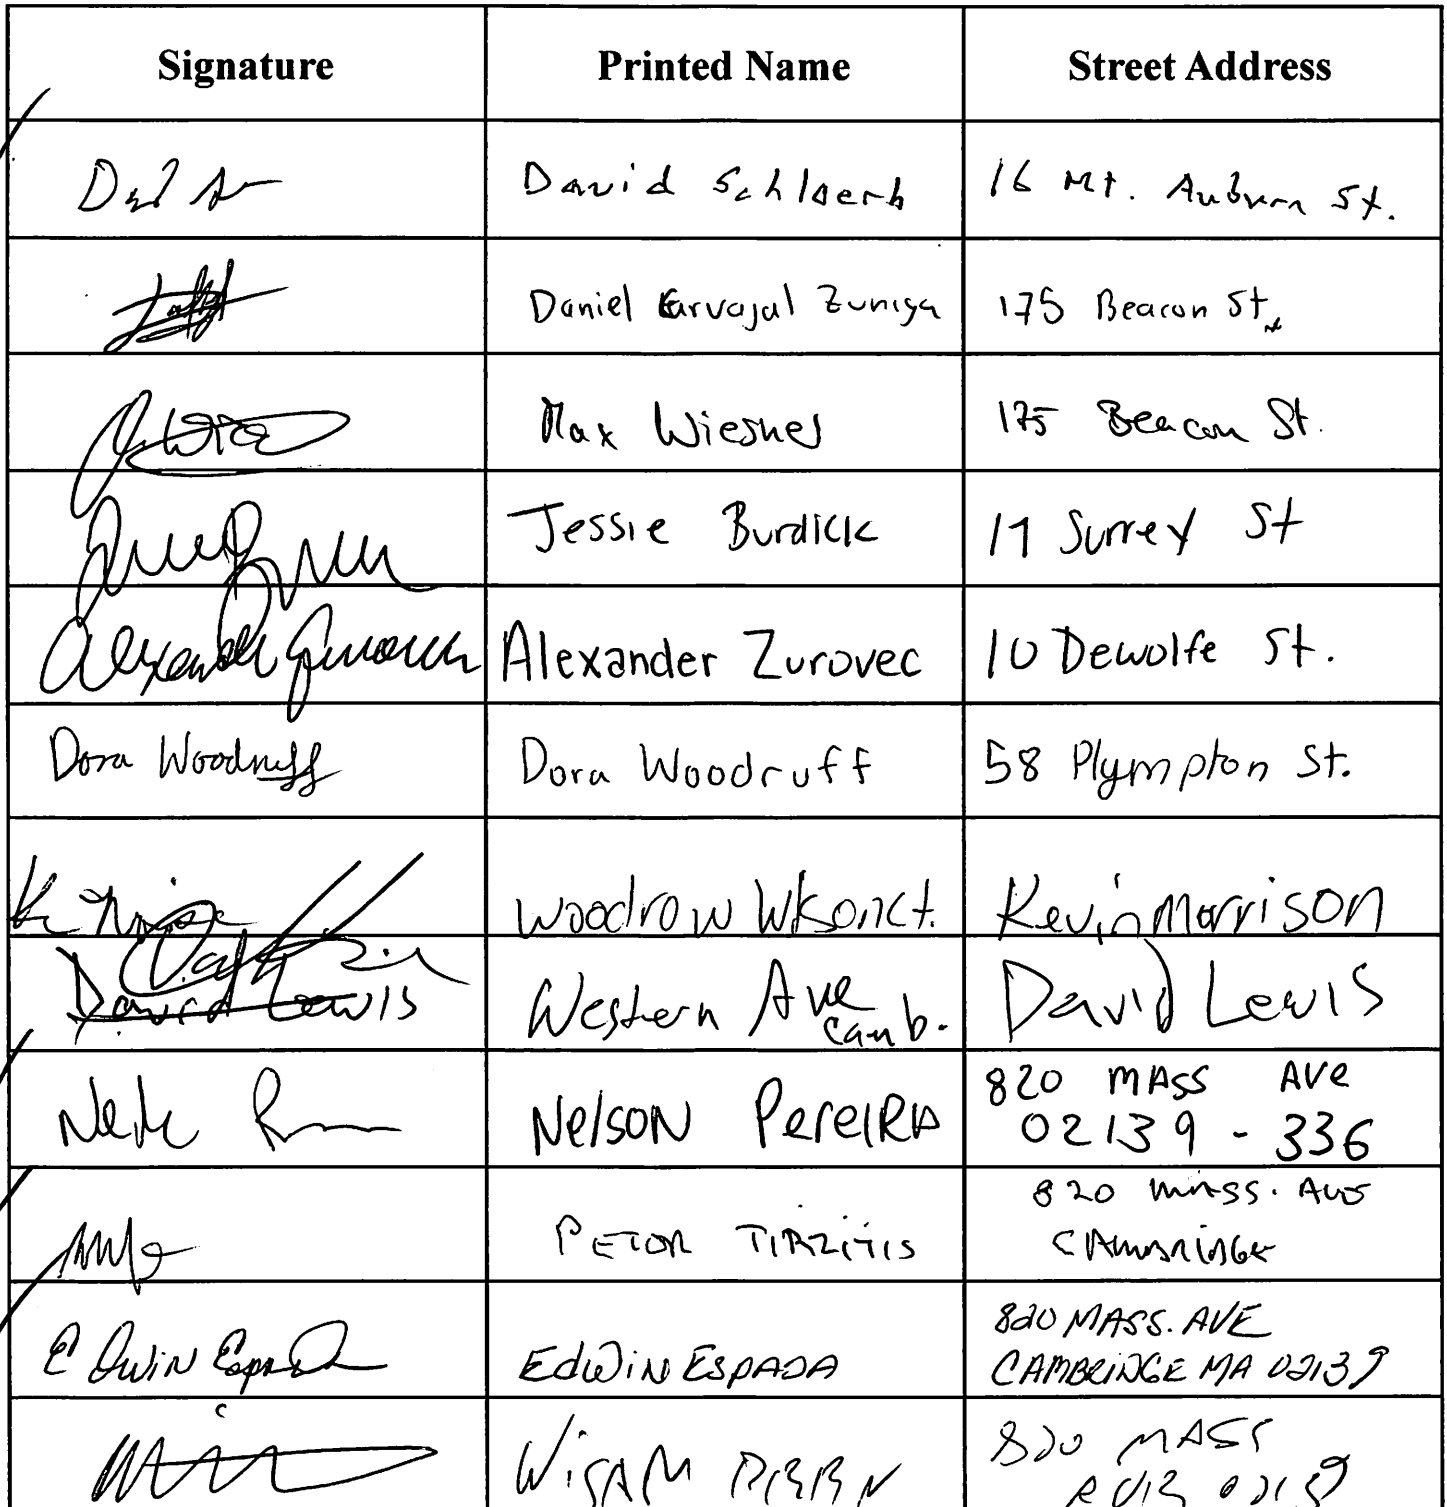 Signature Printed Name Street Address
David Schlaerb 16 Mt. Auburn St.
Daniel Carvajal Zuniga 175 Beacon St.
Max Wiesner 175 Beacon St.
Jessie Burdick 17 Surrey St
Alexander Zurovec 10 Dewolfe St.
Dora Woodruff Dora Woodruff 58 Plympton St.
Woodrow Wilson Ct. Kevin Morrison
David Lewis Western Ave Camb. David Lewis
Nelson Pereira 820 Mass Ave
02139 - 336
820 Mass. Ave
Peter Tirzitis Cambridge
820 MASS. AVE
Edwin Espada Edwin Espada CAMBRIDGE MA 02139
Wisam 820 MASS